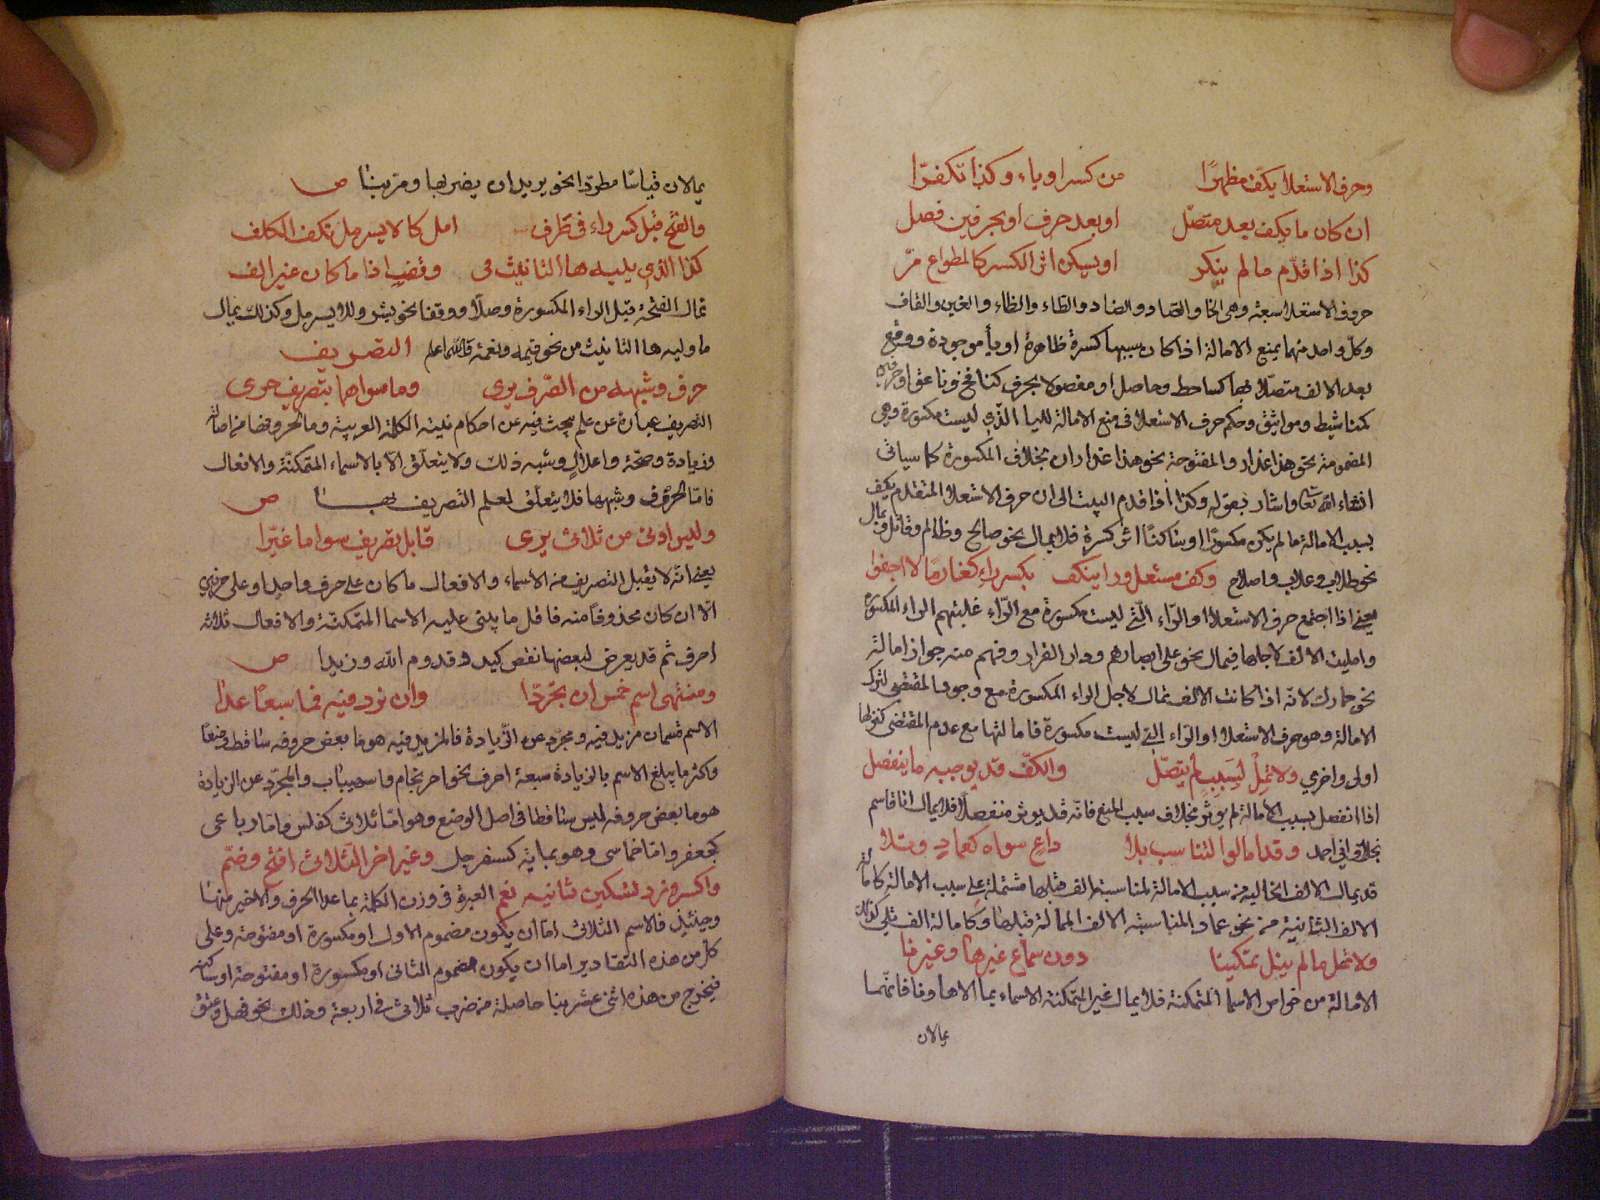 وحرف الاستعلا يكف مظهرا من كسر او ياء وكذا تكف را
ان كان ما يكف بعد متصل او بعد حرف او بحرفين فصل
كذا اذا قدم ما لم ينكسر او يسكن اثر الكسر كالمطواع مر
حروف الاستعلا سبعة وهي الخا والصاد والضاد والطاء والظاء والغين والقاف
وكل واحد منها يمنع الامالة اذا كان سببها كسرة ظاهرة او ياء موجودة ووقع
بعد الالف متصلا بها كساخط وحاصل او مفصولا بحرف كنافخ وناعق او حرفين
كمناشيط ومواثيق وحكم حرف الاستعلا في منع الامالة للراء التي ليست مكسورة وهي
المضمومة نحو هذا عذار والمفتوحة نحو هذا عذاران بخلاف المكسورة كما سياتي
انشاء الله تعالى واشار بقوله وكذا اذا قدم البيت الى ان حرف الاستعلا المتقدم يكف
سبب الامالة ما لم يكن مكسورا او ساكنا اثر كسرة فلا يمال نحو صالح وظالم وقاتل ويمال
نحو طلاب وغلاب واصلاح وكف مستعل ورا ينكف بكسر راء كغارما لا اجفوا
يعني اذا اجتمع حرف الاستعلا او الراء التي ليست مكسورة مع الراء غلبتهم الراء المكسورة
واميلت الالف لاجلها فيمال نحو على ابصارهم ودار القرار وفهم منه جواز امالة
نحو حمارك لانه اذا كانت الالف تمال لاجل الراء المكسورة مع وجود المقتضي لترك
الامالة وهو حرف الاستعلا او الراء التي ليست مكسورة فامالتها مع عدم المقتضي لتركها
اولى واخرى ولا تمل لسبب لم يتصل والكف قد يوجبه ما ينفصل
اذا انفصل سبب الامالة لم يوثر بخلاف سبب المنع فانه قد يوثر منفصلا فلا يمال اتا قاسم
بخلاف اتى احمد وقد امالوا لتناسب بلا داع سواه كعمادا وتلا
قد يمال الالف الخالية من سبب الامالة لمناسبة الف قبلها مشتملة على سبب الامالة كامالة
الالف الثانية من نحو عمادا لمناسبة الالف الممالة قبلها وكامالة الف تلي كذلك
ولا تمل ما لم ينل تمكينا دون سماع غيرها وغيرنا
الامالة من خواص الاسما المتمكنة فلا يمال غير المتمكنة الاسماء بما الا ها ونا فانهما
يمالان
يمالان قياسا مطردا نحو يريد ان يضربها ومر بنا ص
والفتح قبل كسر راء في طرف امل كالايسر مل تكف الكلف
كذا الذي يليه ها التانيث في وقف اذا ما كان غير الف
تمال الفتحة قبل الراء المكسورة وصلا ووقفا نحو بشرر وللايسر مل وكذلك يمال
ما وليه ها التانيث من نحو قيمه ونعمه والله اعلم التصريف
حرف وشبهه من الصرف بري وما سواهما بتصريف حري
التصريف عبارة عن علم يبحث فيه عن احكام بنية الكلمة العربية وما لحروفها من اصالة
وزيادة وصحة واعلال وشبه ذلك ولا يتعلق الا بالاسماء المتمكنة والافعال
فاما الحروف وشبهها فلا يتعلق لعلم التصريف بها ص
وليس ادنى من ثلاثي يرى قابل تصريف سوا ما غيرا
يعني انه لا يقبل التصريف من الاسماء والافعال ما كان على حرف واحد او على حرفين
الا ان كان محذوفا منه فاقل ما يبنى عليه الاسما المتمكنة والافعال ثلاثة
احرف ثم قد يعرض لبعضها نقص كيد وقد وم الله وزيدا ص
ومنتهى اسم خمس ان تجردا وان يزد فيه فما سبعا عدا
الاسم قسمان مزيد فيه ومجرد عن الزيادة فالمزيد فيه هو ما بعض حروفه ساقط وضعا
واكثر ما يبلغ الاسم بالزيادة سبعة احرف نحو احرنجام واسهيباب والمجرد عن الزيادة
هو ما بعض حروفه ليس ساقطا في اصل الوضع وهو اما ثلاثي كفلس واما رباعي
كجعفر واما خماسي وهو نهايته كسفرجل وغير اخر الثلاثي افتح وضم
واكسر وزد تسكين ثانيه تعم العبرة في وزن الكلمة بما عدا الحرف الاخير منها
وحينئذ فالاسم الثلاثي اما ان يكون مضموم الاول او مكسورة او مفتوحة وعلى
كل من هذه التقادير اما ان يكون مضموم الثاني او مكسورة او مفتوحة او ساكنه
فيخرج من هذه اثني عشر بنا حاصلة من ضرب ثلاثي في اربعة وذلك نحو قفل وعنق